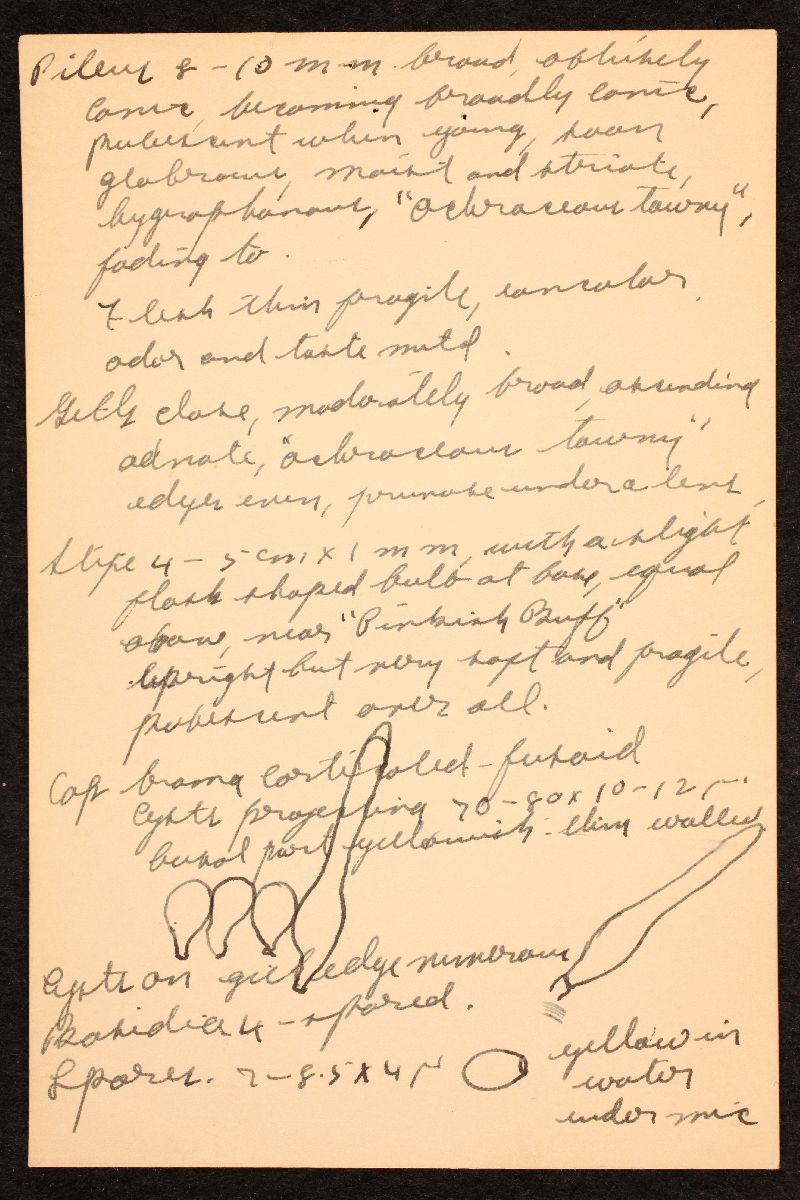 Pileus 8-10 m.m. broad, obtusely
conic, becoming broadly conic,
pubescent when young, soon
glabrous, moist and striate,
hygrophanous, "ochraceous tawny",
fading to .
Flesh thin fragile, concolor,
odor and taste mild.
Gills close, moderately broad, ascending
adnate, "ochraceous tawny",
edges even, pruinose under a lens,
Stipe 4-5 cm x 1 mm, with a slight
flask shaped bulb at base, equal
above, near "Pinkish Buff"
upright but very soft and fragile,
pubescent over all.
Cap corticated - fusoid
Cysts projecting 70-80 x 10-12 µ
basal part yellowish - thin walled
Cysts on gill edge numerous
Basidia 4-spored.
Spores. 7-8.5 x 4 µ
yellow in
water
under mic